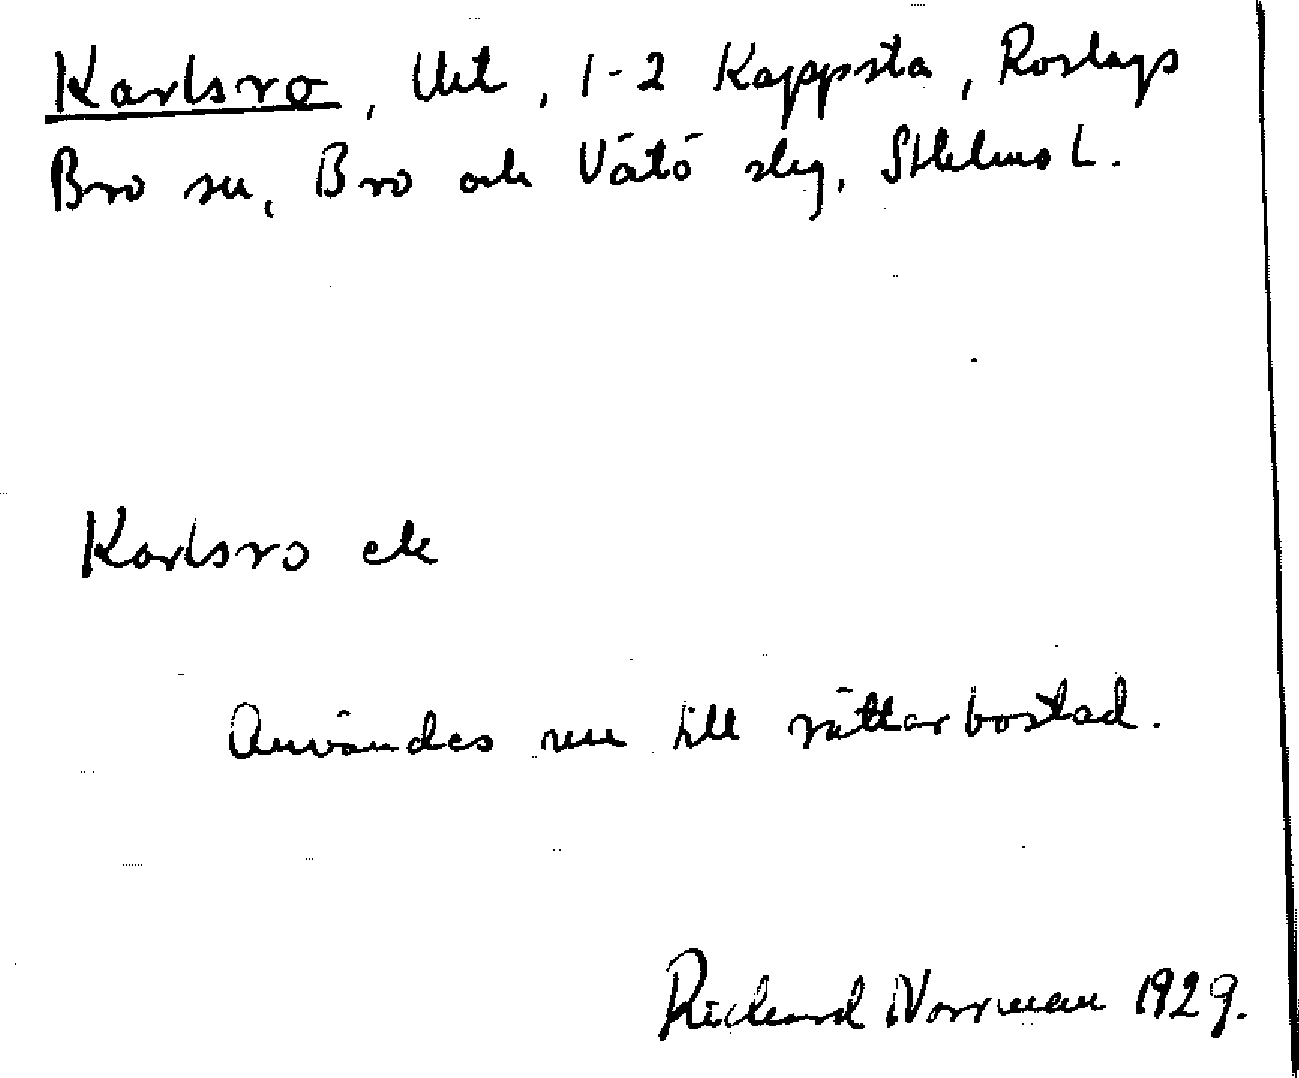 Karlsro, Utt, 1-2 Kappsta, Roslags
Bro sn, Bro och Vätö slg, Sthlms L.
Karlsro ek
Användes nu till rättarbostad.
Richard Norrman 1929.